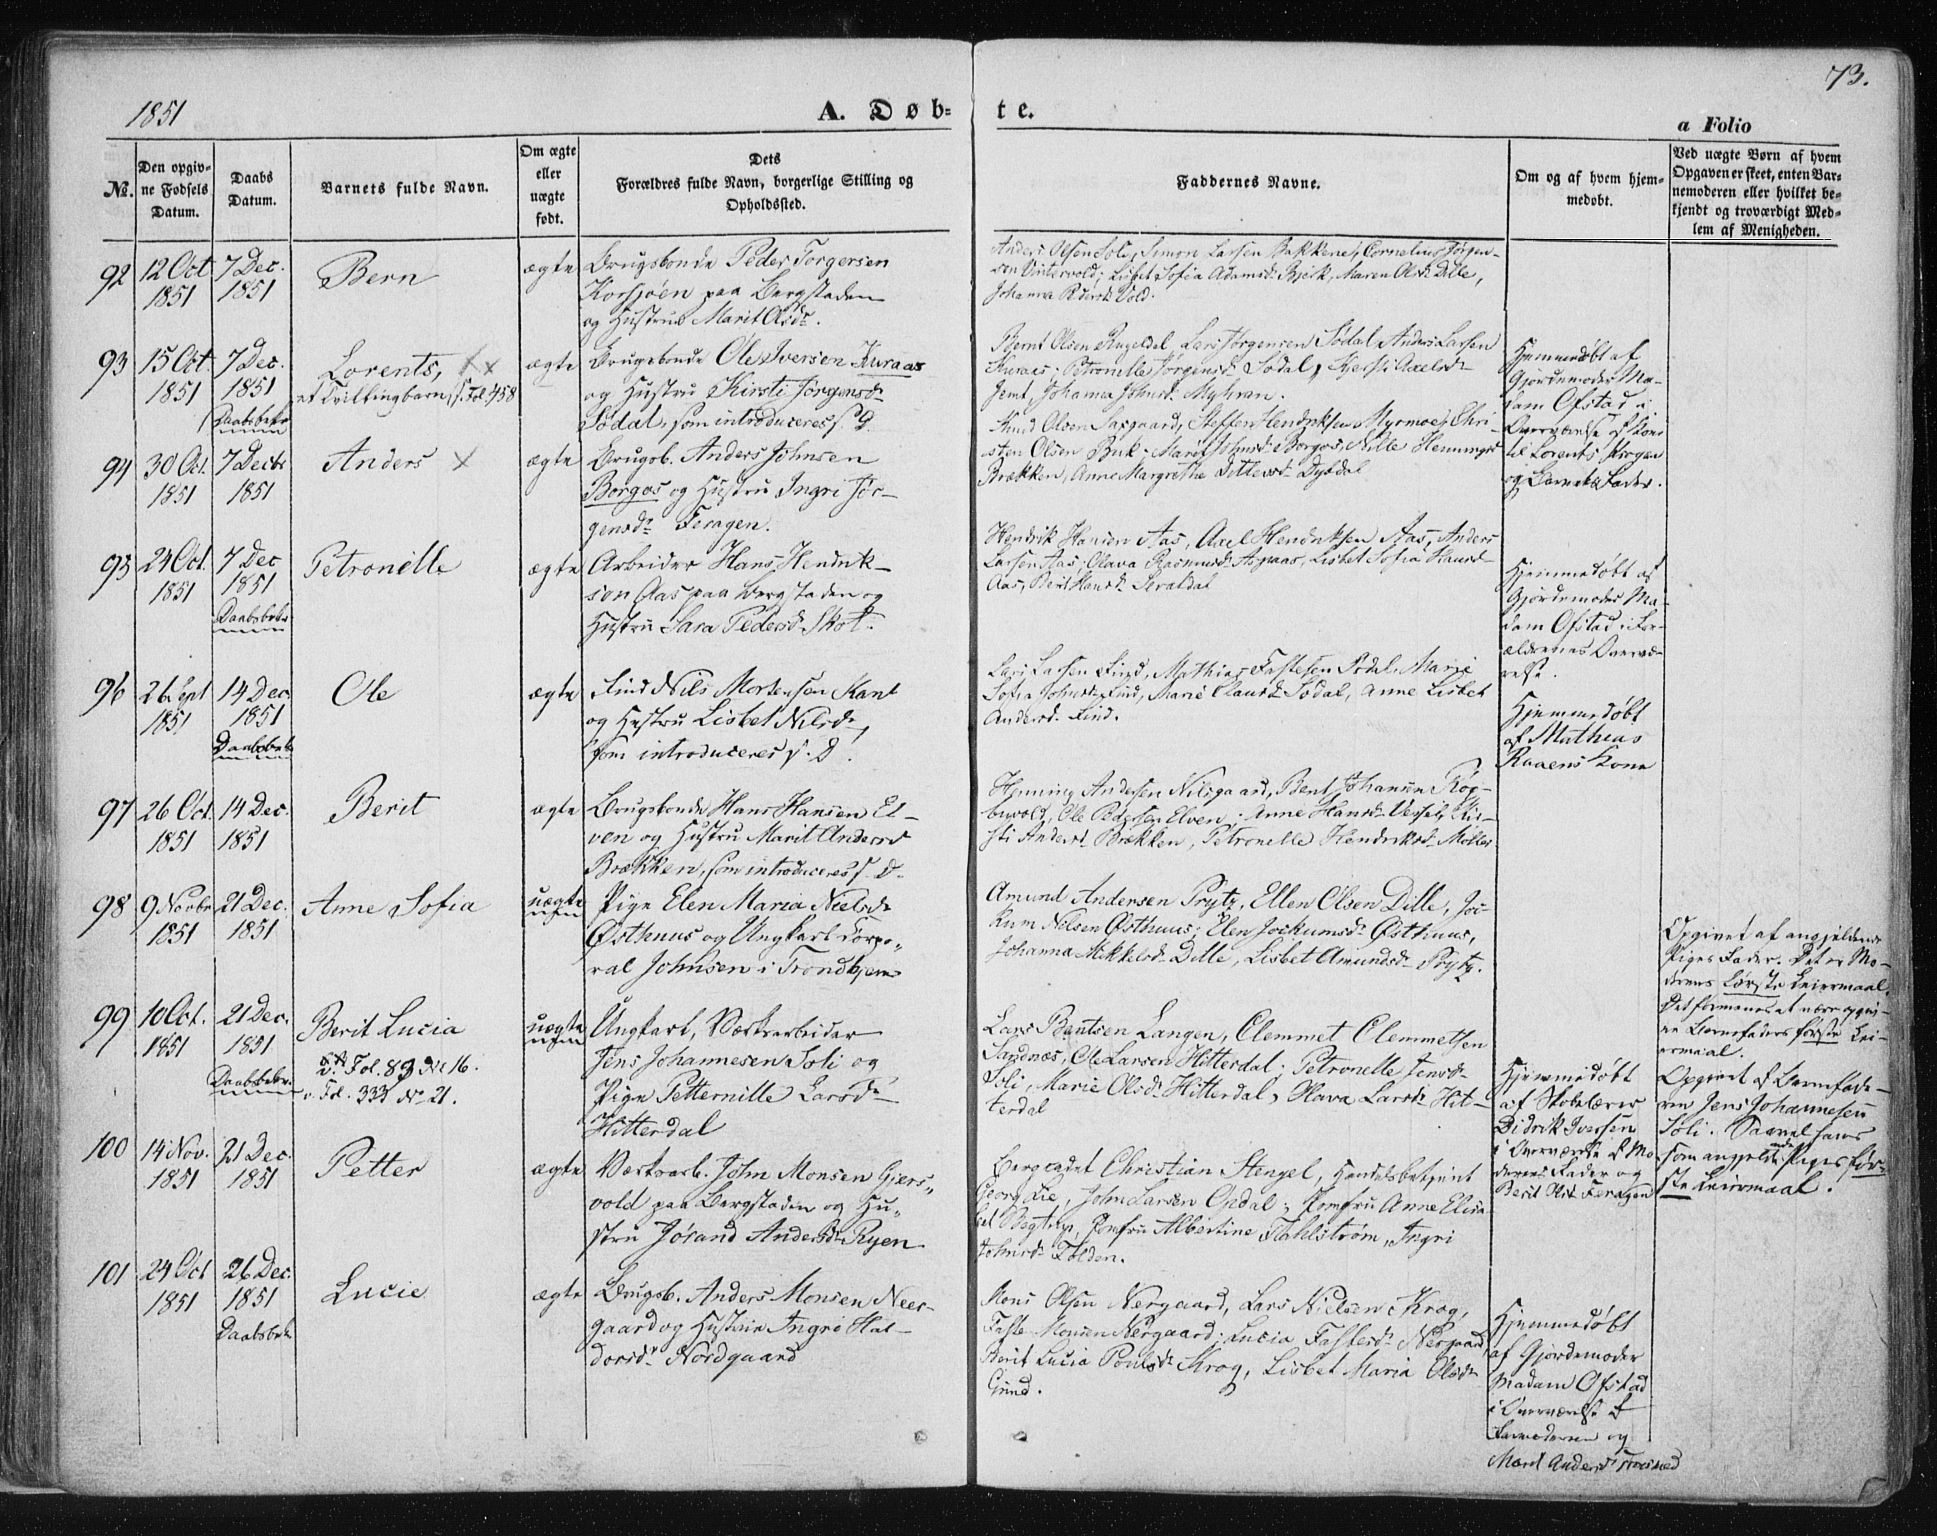 1851
A. Døb-
te.
73.
a Folio
No.
Den opgiv-
ne Fødsels
Datum.
Daabs
Datum.
Barnets fulde Navn.
Om ægte
eller
uægte
født.
Dets
Forældres fulde Navn, borgerlige Stilling og
Opholdssted.
Faddernes Navne.
Om og af hvem hjem-
medøbt.
Ved uægte Børn af hvem
Opgaven er skeet, enten Bar-
nemoderen eller hvilket be-
kjendt og troværdigt Med-
lem af Menigheden.
92
12 Oct
1851
7 Dec.
1851
Bern
ægte
Brugsbonde Peder Torgersen
Korsjøen paa Bergstaden
og Hustru Marit Olsdr.
Anders Olsen Soli, Simon Larsen Bakkene, Cornelius Jørgen-
sen Vintervold; Lisbet Sofia Adamsdr Rjik, Maren Olsdr Dille,
Johanna Pedersdr Vold.
93
15 Oct.
1851
7 Dec.
1851
Daabsbekr
Lorents, xx
et Tvillingbarn, s. Fol. 458
ægte
Brugsbonde Ole Iversen Kuraas
og Hustru Kirsti Jørgensdr
Sødal, som introduceres s. D.
Bernt Olsen Rugeldal, Lars Jørgensen Sødal, Anders Larsen
Kuraas; Petronelle Jørgensdr Sødal, Kjersti Axelsdr
Jemt, Johanna Johnsdr Myhran.
Hjemmedøbt af
Gjordemoder Ma-
dam Ofstad i
Overværelse af Kone
til Lorents Kirgen
og Barnets Fader.
94
30 Oct.
1851
7 Decbr
1851
Anders x
ægte
Brugsb. Anders Johnsen
Borgos og Hustru Ingri Jør-
gensdr Feragen.
Knud Olsen Sapgaard, Steffen Hendriksen Myrmoe, Chri-
sten Olsen Buk; Marit Johnsdr Borgos, Nille Henningsdr
Brækken, Anne Margrethe Ditlevsdr Dypdal
95
24 Oct.
1851
7 Dec
1851
Daabsbekr
Petronelle
ægte
Arbeider Hans Hendrik-
sen Aas paa Bergstaden og
Hustru Sara Pedersdr Skot.
Hendrik Hansen Aas, Axel Hendriksen Aas, Anders
Larsen Aas; Olava Rasmusdr Aspaas, Lisbet Sofia Hansdr
Aas, Berit Hansdr
Hjemmedøbt af
Gjordemoder Ma-
dam Ofstad i For-
ældrenes Overvæ-
relse.
96
26 Sept
1851
14 Dec.
1851
Daabsbekr
Ole
ægte
Find Nils Mortensen Kant
og Hustru Lisbet Nilsdr,
som introduceres s. D.
Lars Larsen Find, Mathias Fastesen Sødal, Marie
Sofia Johnsdr Find, Marie Clausdr Sødal, Anne Lisbet
Andersdr Find.
Hjemmedøbt
af Mathias
Raaens Kone
97
26 Oct.
1851
14 Dec.
1851
Berit
ægte
Brugsbonde Hans Hansen El-
ven og Hustru Marit Andersdr
Brækken, som introduceres s. D.
Henning Andersen Nilsgaard, Bent Johansen Røg-
bervold, Ole Pedersen Elven; Anne Hansdr Vessel, Kir-
sti Andersdr Brækken, Petronelle Hendriksdr Møller
98
9 Novbr
1851
21 Dec.
1851
Anne Sofia
uægte
Pige Elen Maria Neelsdr
Østhuus og Ungkarl Corpo-
ral Johnsen i Trondhjem
Amund Andersen Prytz, Ellen Olsen Dille, Joc-
kum Nilsen Østhuus; Elen Jockumsdr Østhuus,
Johanna Mikkelsdr Dille, Lisbet Amundsdr Prytz.
Opgivet af angjeldende
Piges Fader. Det er Mo-
derens første Leiermaal.
Det formenes at være opgiv-
ne Barnefaders første Lei-
ermaal.
99
10 Oct.
1851
21 Dec.
1851
Daabsbekr.
Berit Lucia
v. Fol. 83 No 16.
v. Fol. 333 No 21.
uægte
Ungkarl, Værksarbeider
Jens Johannesen Soli og
Pige Petternille Larsdr
Hitterdal
Lars Bentsen Langen, Clemmet Clemmetsen
Sandnæs, Ole Larsen Hitterdal; Petronelle Jensdr
Soli, Marie Olsdr Hitterdal, Olava Larsdr Hit-
terdal
Hjemmedøbt
af Skolelærer
Didrik Iversen
i Overværelse af Mo-
derens Fader og
Berit Feragen
Opgivet af Barnefade-
ren Jens Johannesen
Soli. Saavel hans
som angjeldende Piges før-
ste Leiermaal.
100
14 Nov.
1851
21 Dec.
1851
Petter
ægte
Værksarb. John Monsen Gjers-
vold paa Bergstaden og Hu-
stru Jørand Andersdr Ryen
Bergcadet Christian Stengel, Handelsbetjent
Georg Lie, John Larsen Opdal; Jomfru Anne Elisa-
bet Begtrup, Jomfru Albertine Dahlstrøm, Ingri
Johnsdr Folden.
101
24 Oct
1851
26 Dec.
1851
Daabsbekr
Lucie
ægte
Brugsb. Anders Monsen Neer-
gaard og Hustrue Ingri Hal-
dorsdr Nordgaard
Mons Olsen Nergaard, Lars Nielsen Krog,
Faste Monsen Nergaard; Lucia Fastesdr Nergaard,
Berit Lucia Poulsdr Krog, Lisbet Maria Olsdr
Grind.
Hjemmedøbt
af Gjordemoder
Madam Ofstad
i Overværelse af
Farmoderen og
Marit Andersdr